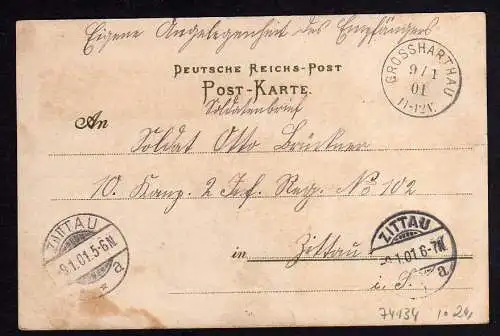 Eigene Angelegenheit des Empfängers
DEUTSCHE REICHS-POST
POST-KARTE.
Soldatenbrief
GROSSHARTHAU
9/1
01
11-12V.
An
Soldat Otto Brückner
10. Komp. 2 Inf. Reg. No 102
in Zittau
i. S.
ZITTAU
-9.1.01.5-6N
* a
ZITTAU
-9.1.01.6-7N
a
74134